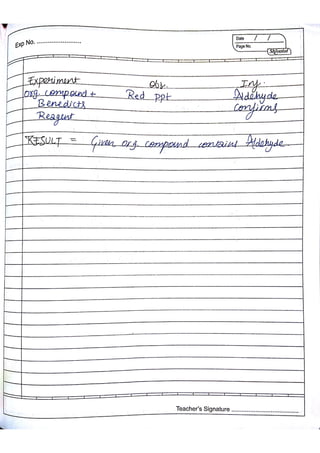 Exp No.
Date / /
Page No.
Experiment Obs. Inf.
Org. compound + Red ppt Aldehyde
Benedicts confirms
Reagent
*RESULT = Given org. compound contains Aldehyde.
Teacher's Signature